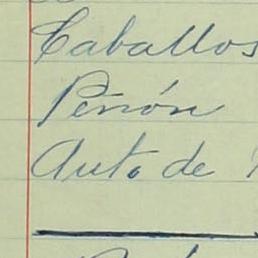 Caballos
Peñón
Auto de